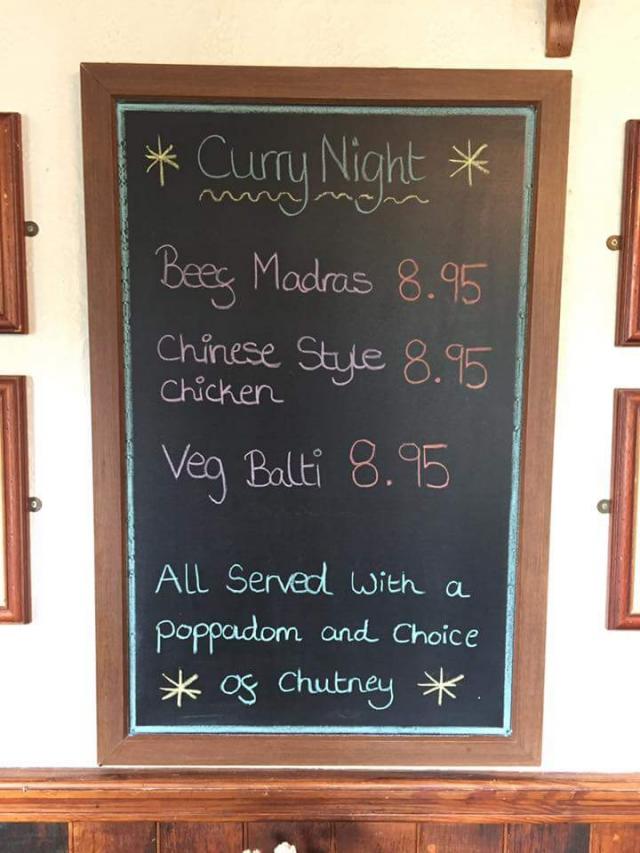 Curry Night
Beef Madras 8.95
Chinese Style 8.95
Chicken
Veg Balti 8.95
All Served with a
poppadom and Choice
of Chutney